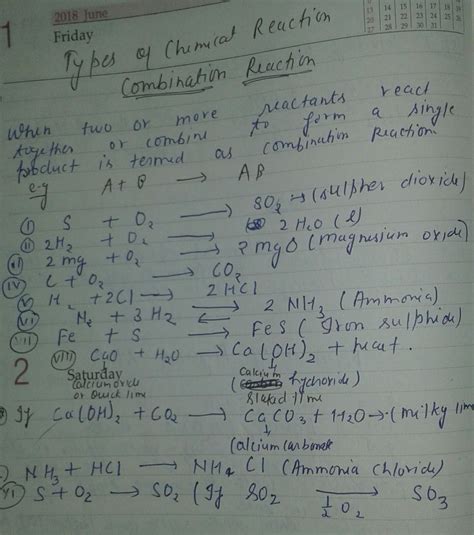 2018 June
1
Friday
Types of Chemical Reaction
Combination Reaction
When two or more reactants react
together or combine to form a single
product is termed as combination Reaction.
e.g A + B → AB
(i) S + O2 → SO2 → (sulpher dioxide)
(ii) 2H2 + O2 → 2H2O (l)
(iii) 2mg + O2 → 2mgO (magnesium oxide)
(iv) C + O2 → CO2
(v) H2 + 2Cl → 2HCl
(vi) N2 + 3H2 ⇌ 2NH3 (Ammonia)
(vii) Fe + S → FeS (Iron sulphide)
(viii) CaO + H2O → Ca(OH)2 + heat.
2
Saturday
Calcium oxide or Quick lime
(Calcium hydroxide)
Slaked lime
If Ca(OH)2 + CO2 → CaCO3 + H2O → (milky lime
(Calcium carbonate
NH3 + HCl → NH4Cl (Ammonia chloride)
(xi) S + O2 → SO2 (If SO2 → 1/2 O2 SO3